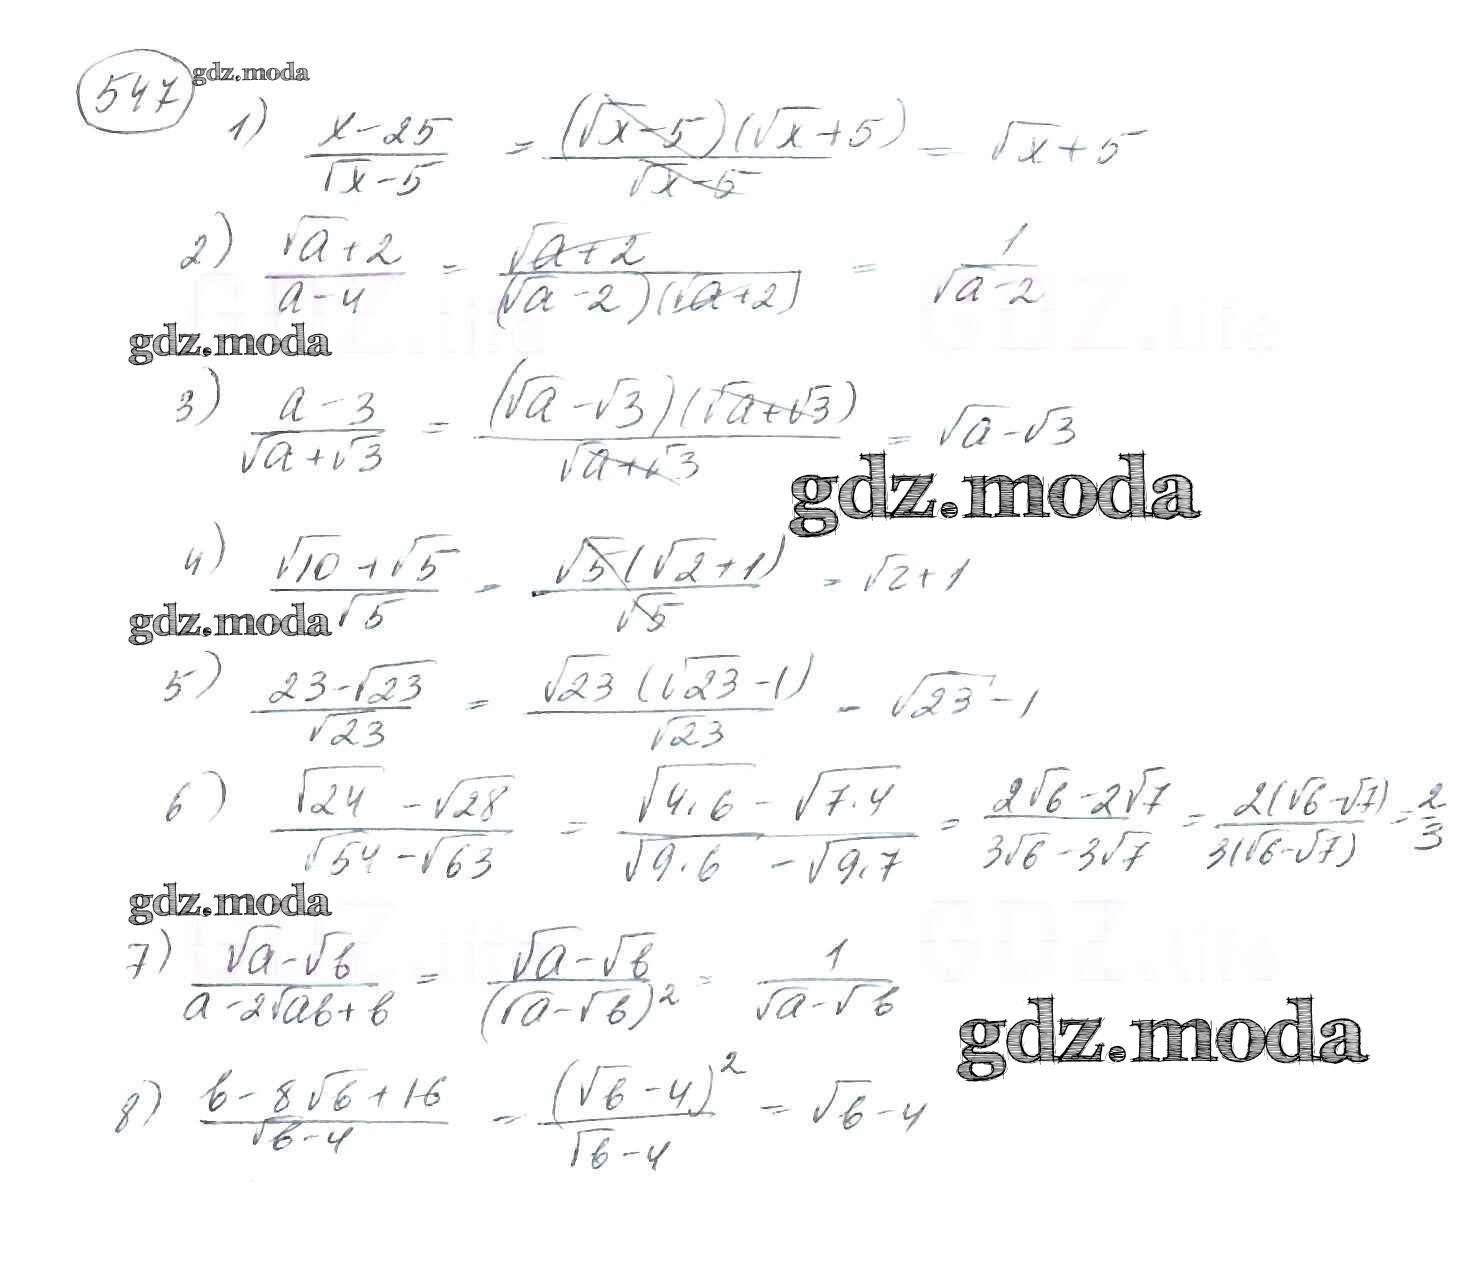 547 gdz.moda
1) (x-25)/(√x-5) = ((√x-5)(√x+5))/(√x-5) = √x+5
2) (√a+2)/(a-4) = (√a+2)/((√a-2)(√a+2)) = 1/(√a-2)
GDZ.life GDZ.life
gdz.moda
3) (a-3)/(√a+√3) = ((√a-√3)(√a+√3))/(√a+√3) = √a-√3
gdz.moda
4) (√10+√5)/√5 = (√5(√2+1))/√5 = √2+1
gdz.moda
5) (23-√23)/√23 = (√23(√23-1))/√23 = √23-1
6) (√24-√28)/(√54-√63) = (√4·6-√7·4)/(√9·6-√9·7) = (2√6-2√7)/(3√6-3√7) = (2(√6-√7))/(3(√6-√7)) = 2/3
gdz.moda
GDZ.life GDZ.life
7) (√a-√b)/(a-2√ab+b) = (√a-√b)/(√a-√b)² = 1/(√a-√b)
gdz.moda
8) (b-8√b+16)/(√b-4) = (√b-4)²/(√b-4) = √b-4